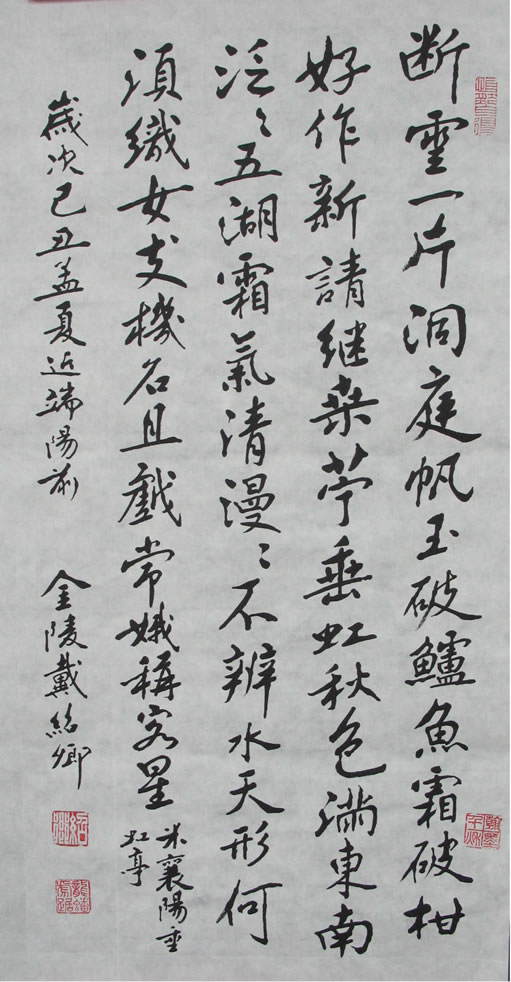 断雲一片洞庭帆玉破鱸魚霜破柑
好作新請继桒苧垂虹秋色满東南
泛〻五湖霜氣清漫〻不辨水天形何
須織女支機石且戲常娥稱客星
米襄陽垂
虹亭
歲次己丑孟夏近端陽前
金陵戴紹卿